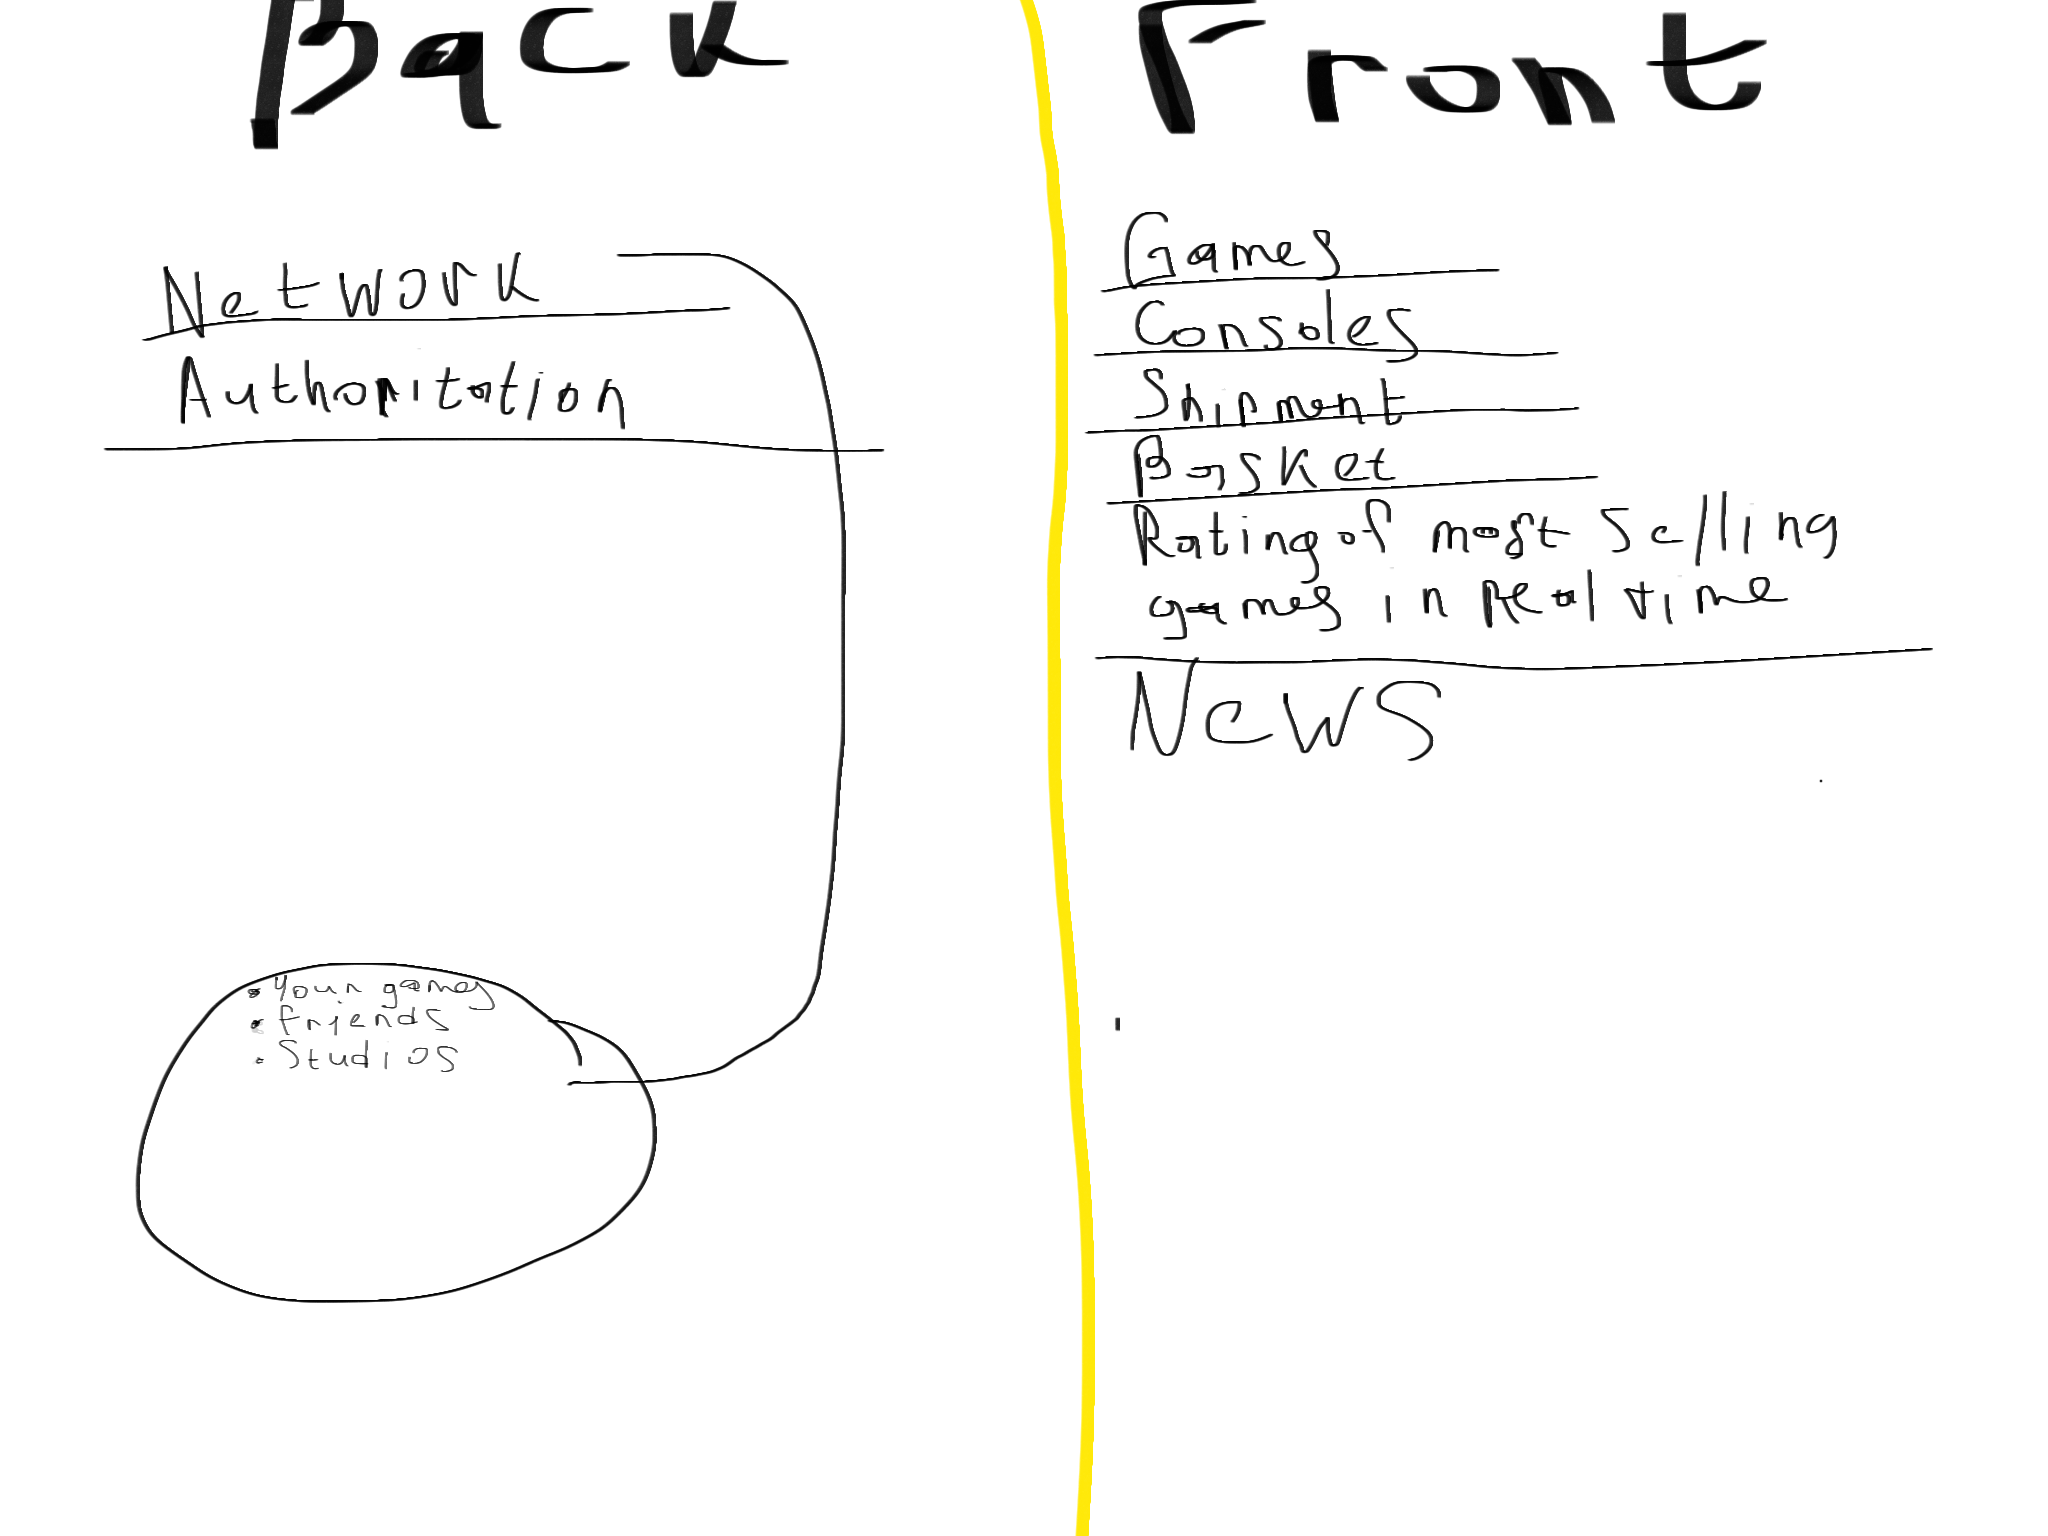 Back
Network
Authoritation
• Your games
• friends
• Studios
Front
Games
Consoles
Shipment
Basket
Rating of most selling
games in real time
News